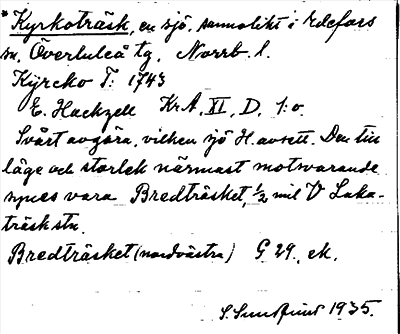 * Kyrkoträsk, en sjö, sannolikt i Edefors
sn, Överluleå tg, Norrb. l.
Kyrcko T. 1743
E. Hackzell Kr.A, XI, D, 1:o.
Svårt avgöra, vilken sjö H. avsett. Den till
läge och storlek närmast motsvarande
synes vara Bredträsket, ½ mil V Laka-
träsk stn.
Bredträsket (nordvästra) G 29. ek.
S. Sundfund 1935.